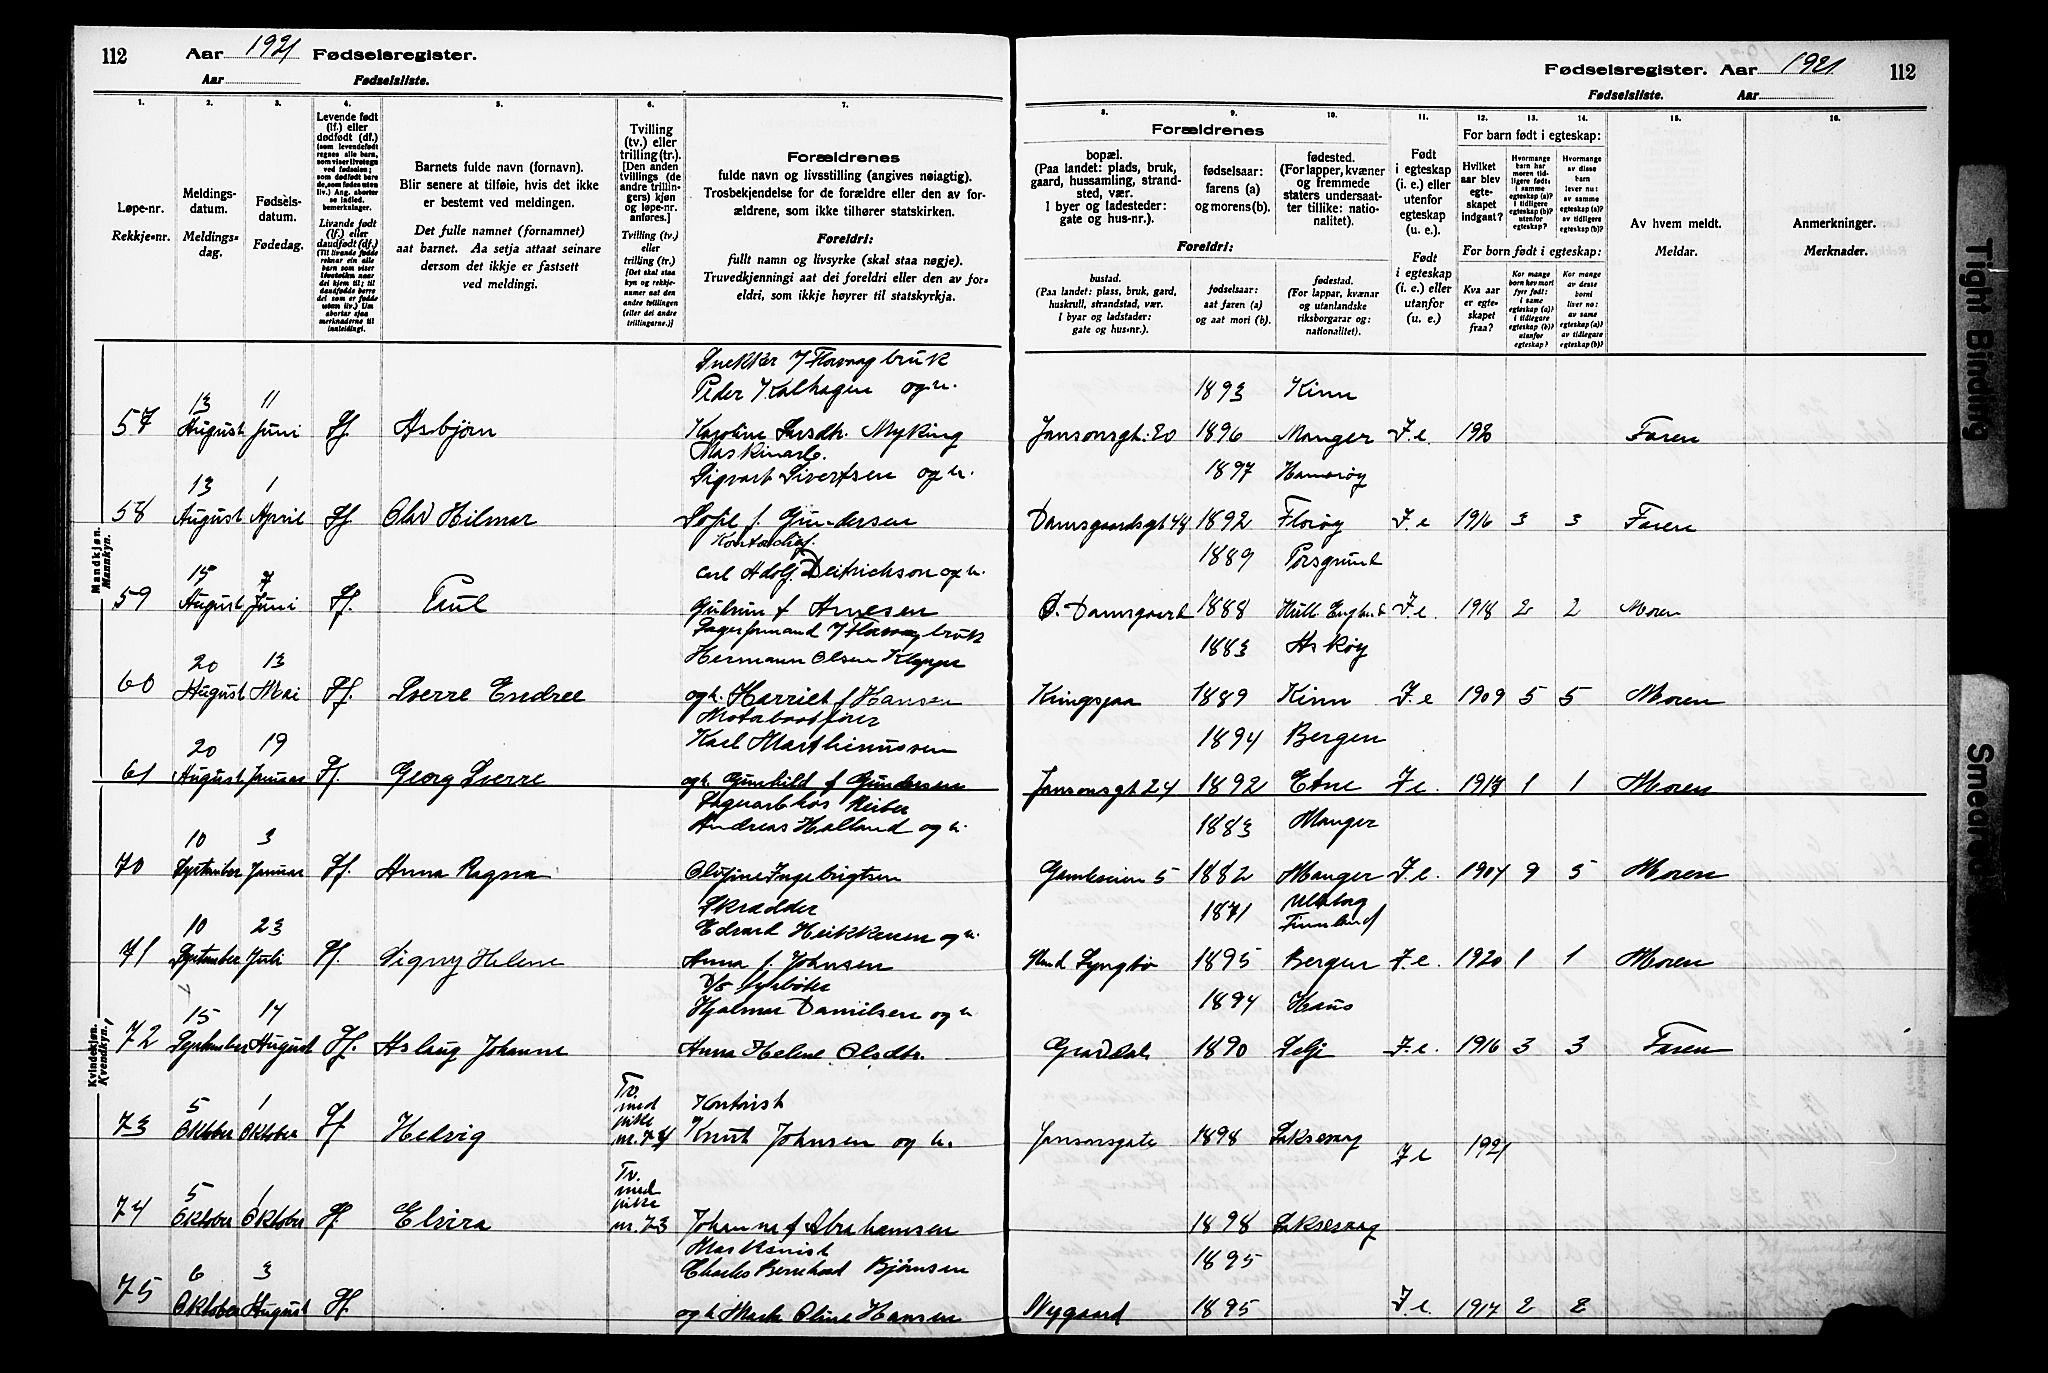 112 Aar 1921 Fødselsregister.
Aar Fødselsliste.
1. 2. 3. 4. 5. 6. 7.
Løpe-nr.
Rekkje-nr.
Meldings-
datum.
Meldings-
dag.
Fødsels-
datum.
Fødedag.
Levende født
(lf.) eller
dødfødt (df.)
Livande født
(lf.) eller
daudfødt (df.)
Barnets fulde navn (fornavn).
Blir senere at tilføie, hvis det ikke
er bestemt ved meldingen.
Det fulle namnet (fornamnet)
aat barnet. Aa setja attaat seinare
dersom det ikkje er fastsett
ved meldingi.
Tvilling
(tv.) eller
trilling (tr.).
[Den anden
tvillings (de
andre trillin-
gers) kjøn
og løpe-nr.
anføres.]
Tvilling (tv.)
eller
trilling (tr.)
[Det skal staa
kyn og rekkje-
numer aat den
andre tvillingen
(eller dei andre
trillingarne.)]
Forældrenes
fulde navn og livsstilling (angives nøiagtig).
Trosbekjendelse for de forældre eller den av for-
ældrene, som ikke tilhører statskirken.
Foreldri:
fullt namn og livsyrke (skal staa nøgje).
Truvedkjenningi aat dei foreldri eller den av for-
eldri, som ikkje høyrer til statskyrkja.
Mandkjøn.
Mannkyn.
Snekker v/ Florvaag bruk
Peder Kalhagen og h.
57 13 August 11 Juni Lf. Asbjørn Karoline Larsdtr. Myking
Maskinarb.
Sigvart Sivertsen og h.
58 13 August 1 April Lf. Olav Hilmar Sofie f. Gundersen
Kontorchef.
Carl Adolf Deitrichson og h.
59 15 August 7 Juni Lf. Paul Gudrun f Arnesen
Lagerformand v/ Florvaag bruk
Hermann Olsen Klepper
60 20 August 13 Mai Lf. Sverre Endree og h. Harriet f Hansen
Motorbaadfører
Karl Marthinussen
61 20 August 19 Januar Lf. Georg Sverre og h. Gunhild f Gundersen
Kvindekjøn.
Kvendkyn.
Lagerarb hos Rieber
Andreas Halland og h.
70 10 September 3 Januar Lf. Anna Ragna Olufine Ingebrigtsen
Skrædder
Edvard Heikkenen og h.
71 10 September 23 Juli Lf. Signy Helene Anna f. Johnsen
D/S fyrbøter
Hjalmar Danielsen og h
72 15 September 14 August Lf. Aslaug Johanne Anna Helene Olsdtr.
Kontorist
73 5 Oktober 1 Oktober Lf Hedvig Tv. med pike nr. 74 Knut Johnsen og h.
74 5 Oktober 1 Oktober Lf. Elvira Tv. med pike nr. 73 Johanna f Abrahamsen
Maskinist
Charles Bernhard Bjørnsen
75 6 Oktober 3 August Lf og h Oline Hansen
Fødselsregister. Aar 1921 112
Fødselsliste. Aar
8. 9. 10. 11. 12. 13. 14. 15. 16.
Forældrenes
bopæl.
(Paa landet: plads, bruk,
gaard, hussamling, strand-
sted, vær.
I byer og ladesteder:
gate og hus-nr.).
Foreldri:
bustad.
(Paa landet: plass, bruk, gard,
huskrull, strandstad, vær.
I byar og ladstader:
gate og hus-nr.).
fødselsaar:
farens (a)
og morens (b).
fødselsaar:
aat faren (a)
og aat mori (b).
fødested.
(For lapper, kvæner
og fremmede
staters undersaat-
ter tillike: natio-
nalitet).
fødestad.
(For lappar, kvænar
og utanlandske
riksborgarar og:
nationalitet).
Født
i egteskap
(i. e.) eller
utenfor
egteskap
(u. e.).
Født
i egteskap
(i. e.) eller
utanfor
(u. e.).
For barn født i egteskap:
Hvilket
aar blev
egte-
skapet
indgaat?
For born født i egteskap:
Kva aar
er egte-
skapet
fraa?
Av hvem meldt.
Meldar.
Anmerkninger.
Merknader.
1893 Kinn
Jansonsgt. 20 1896 Manger I.e. 1920 Faren
1897 Hamarøy
Damsgaardsgt 48 1892 Florøy I.e 1916 3 3 Faren
1889 Porsgrund
Ø. Damsgaard 1888 Hull England I.e. 1918 2 2 Moren
1883 Askøy
Kringsjaa 1889 Kinn I.e 1909 5 5 Moren
1894 Bergen
Jansonsgt 24 1892 Etne I.e. 1918 1 1 Moren
1883 Manger
Gamleveien 5 1882 Manger I.e. 1904 9 5 Moren
1871 Uleaborg Finnland
Lyngbø 1895 Bergen I.e. 1920 1 1 Moren
1894 Haus
Gravdal 1890 Selje I.e. 1916 3 3 Faren
Jansonsgate 1898 Laksevaag
I e 1921
1898 Laksevaag
1895
Nygaard 1895 I.e. 1917 2 2
Tight Binding
Smeared